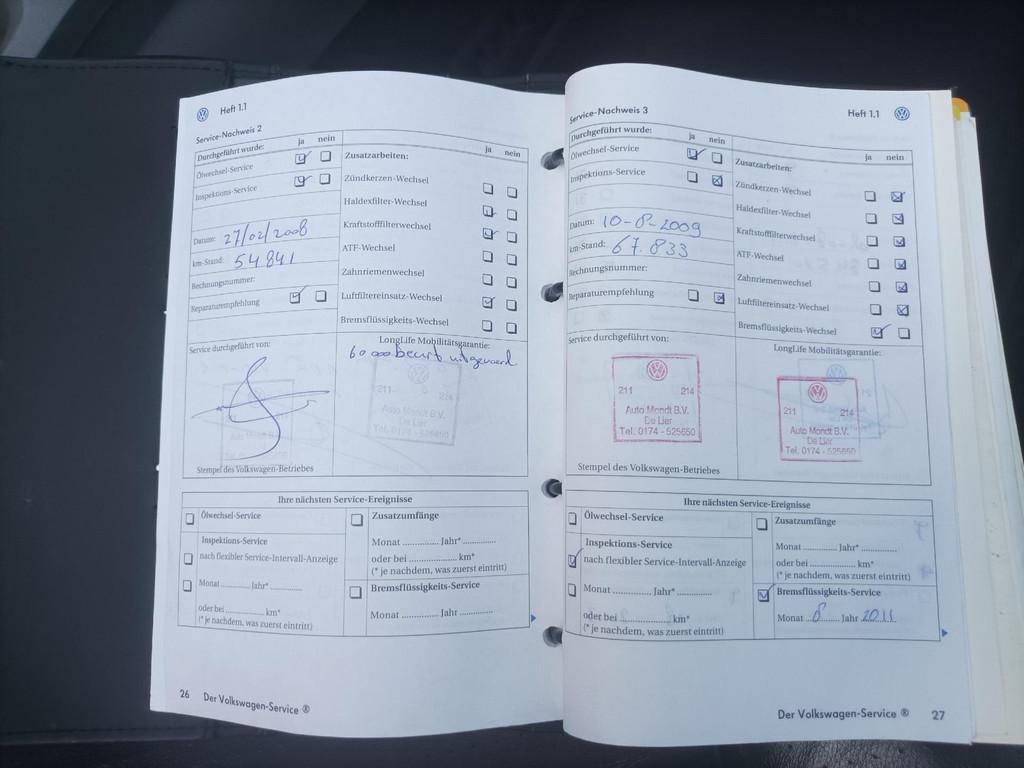 Heft 1.1
Service-Nachweis 2
Durchgeführt wurde: ja nein
Ölwechsel-Service
Inspektions-Service
Datum: 27/02/2008
km-Stand: 54841
Rechnungsnummer:
Reparaturempfehlung
ja nein
Zusatzarbeiten:
Zündkerzen-Wechsel
Haldexfilter-Wechsel
Kraftstofffilterwechsel
ATF-Wechsel
Zahnriemenwechsel
Luftfiltereinsatz-Wechsel
Bremsflüssigkeits-Wechsel
Service durchgeführt von:
Stempel des Volkswagen-Betriebes
LongLife Mobilitätsgarantie:
60 000 beurt uitgevoerd
211 214
Auto Mondt B.V.
De Lier
Tel. 0174 - 525650
Ihre nächsten Service-Ereignisse
Ölwechsel-Service
Inspektions-Service
nach flexibler Service-Intervall-Anzeige
Monat ............ Jahr* ............
oder bei ............ km*
(* je nachdem, was zuerst eintritt)
Zusatzumfänge
Monat ............ Jahr* ............
oder bei ............ km*
(* je nachdem, was zuerst eintritt)
Bremsflüssigkeits-Service
Monat ............ Jahr ............
26 Der Volkswagen-Service ®
Service-Nachweis 3
Heft 1.1
Durchgeführt wurde: ja nein
Ölwechsel-Service
Inspektions-Service
Datum: 10-8-2009
km-Stand: 67.833
Rechnungsnummer:
Reparaturempfehlung
ja nein
Zusatzarbeiten:
Zündkerzen-Wechsel
Haldexfilter-Wechsel
Kraftstofffilterwechsel
ATF-Wechsel
Zahnriemenwechsel
Luftfiltereinsatz-Wechsel
Bremsflüssigkeits-Wechsel
Service durchgeführt von:
211 214
Auto Mondt B.V.
De Lier
Tel. 0174 - 525650
Stempel des Volkswagen-Betriebes
LongLife Mobilitätsgarantie:
211 214
Auto Mondt B.V.
De Lier
Tel. 0174 - 525650
Ihre nächsten Service-Ereignisse
Ölwechsel-Service
Inspektions-Service
nach flexibler Service-Intervall-Anzeige
Monat ............ Jahr* ............
oder bei ............ km*
(* je nachdem, was zuerst eintritt)
Zusatzumfänge
Monat ............ Jahr* ............
oder bei ............ km*
(* je nachdem, was zuerst eintritt)
Bremsflüssigkeits-Service
Monat 8 Jahr 2011
Der Volkswagen-Service ® 27